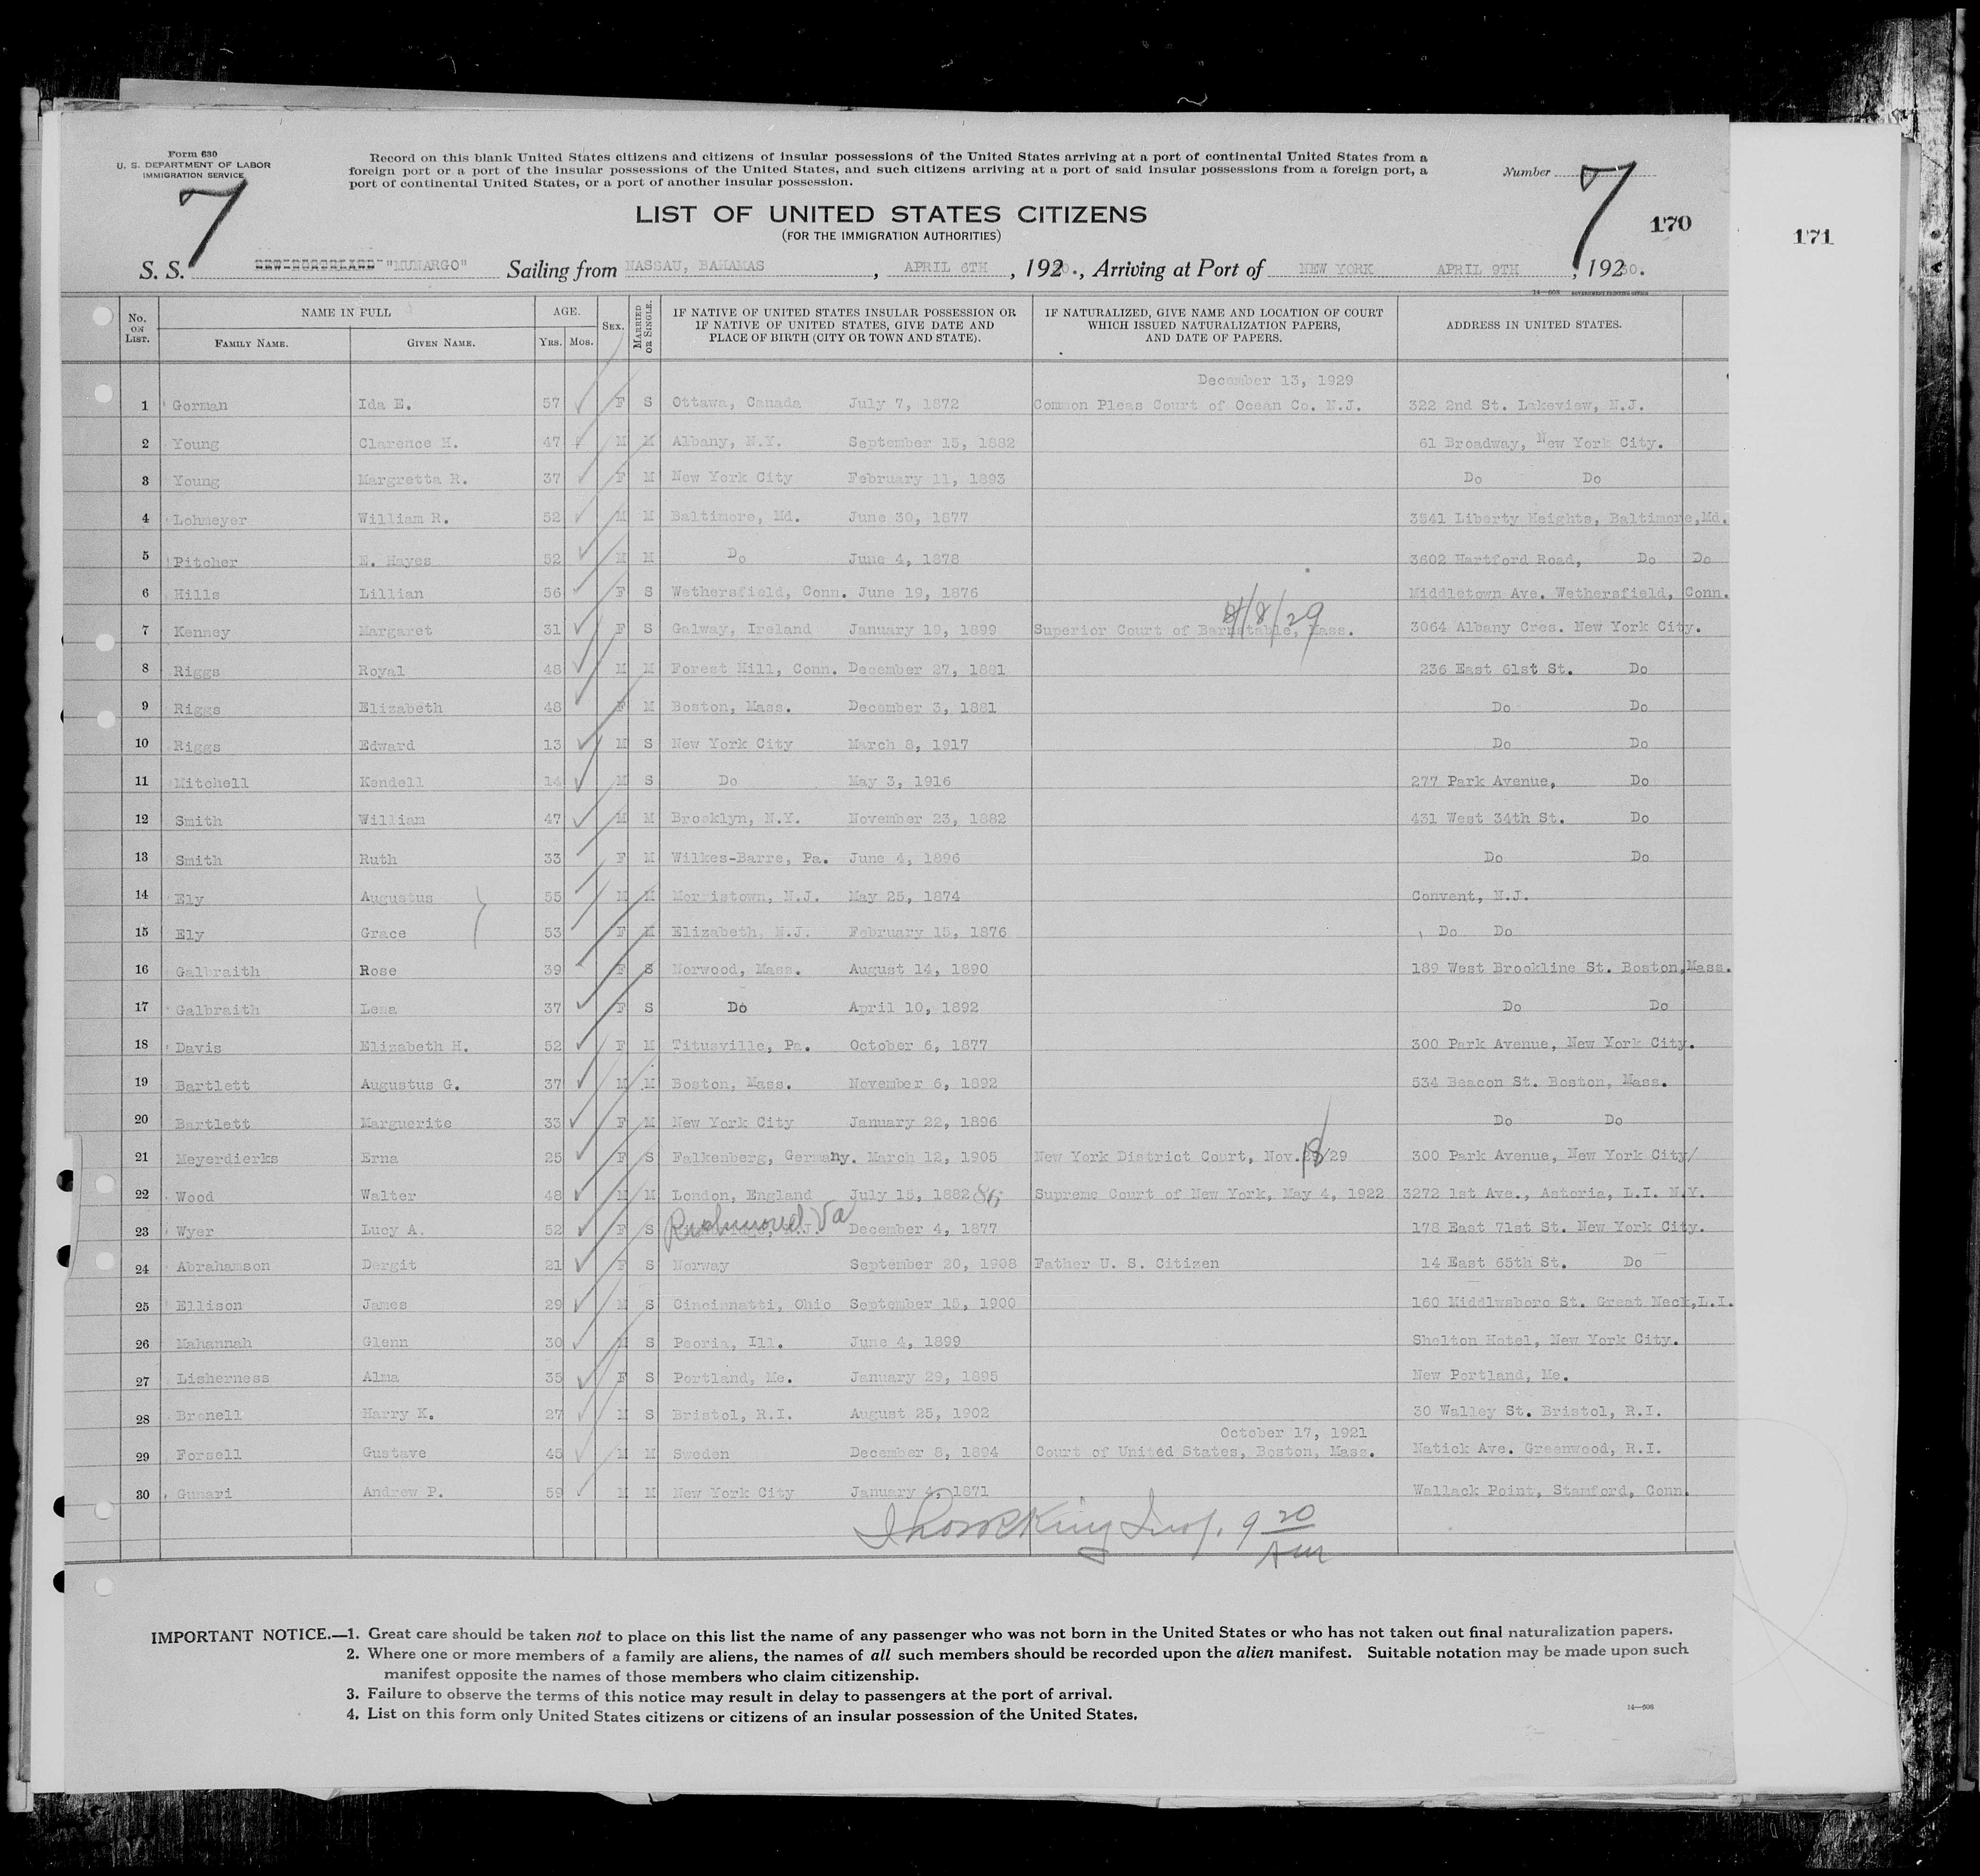 Form 630
U. S. DEPARTMENT OF LABOR
IMMIGRATION SERVICE
7
Record on this blank United States citizens and citizens of insular possessions of the United States arriving at a port of continental United States from a
foreign port or a port of the insular possessions of the United States, and such citizens arriving at a port of said insular possessions from a foreign port, a
port of continental United States, or a port of another insular possession.
Number 7
170
171
LIST OF UNITED STATES CITIZENS
(FOR THE IMMIGRATION AUTHORITIES)
S. S. "MUNARGO" Sailing from NASSAU, BAHAMAS, APRIL 6TH, 1920., Arriving at Port of NEW YORK APRIL 9TH, 19230.
14—608 GOVERNMENT PRINTING OFFICE
No. ON LIST. NAME IN FULL FAMILY NAME. GIVEN NAME. AGE. YRS. MOS. SEX. MARRIED OR SINGLE. IF NATIVE OF UNITED STATES INSULAR POSSESSION OR IF NATIVE OF UNITED STATES, GIVE DATE AND PLACE OF BIRTH (CITY OR TOWN AND STATE). IF NATURALIZED, GIVE NAME AND LOCATION OF COURT WHICH ISSUED NATURALIZATION PAPERS, AND DATE OF PAPERS. ADDRESS IN UNITED STATES.
December 13, 1929
1 Gorman Ida E. 57 F S Ottawa, Canada July 7, 1872 Common Pleas Court of Ocean Co. N.J. 322 2nd St. Lakeview, N.J.
2 Young Clarence H. 47 M M Albany, N.Y. September 15, 1882 61 Broadway, New York City.
3 Young Margretta R. 37 F M New York City February 11, 1893 Do Do
4 Lohmeyer William R. 52 M M Baltimore, Md. June 30, 1877 3541 Liberty Heights, Baltimore, Md.
5 Pitcher E. Hayes 52 M M Do June 4, 1878 3602 Hartford Road, Do Do
6 Hills Lillian 56 F S Wethersfield, Conn. June 19, 1876 Middletown Ave. Wethersfield, Conn.
7 Kenney Margaret 31 F S Galway, Ireland January 19, 1899 Superior Court of Barnstable, Mass. /8/29 3064 Albany Cres. New York City.
8 Riggs Royal 48 M M Forest Hill, Conn. December 27, 1881 236 East 61st St. Do
9 Riggs Elizabeth 48 F M Boston, Mass. December 3, 1881 Do Do
10 Riggs Edward 13 M S New York City March 8, 1917 Do Do
11 Mitchell Kendell 14 M S Do May 3, 1916 277 Park Avenue, Do
12 Smith William 47 M M Brooklyn, N.Y. November 23, 1882 431 West 34th St. Do
13 Smith Ruth 33 F M Wilkes-Barre, Pa. June 4, 1896 Do Do
14 Ely Augustus 55 M M Morristown, N.J. May 25, 1874 Convent, N.J.
15 Ely Grace 53 F M Elizabeth, N.J. February 15, 1876 Do Do
16 Galbraith Rose 39 F S Norwood, Mass. August 14, 1890 189 West Brookline St. Boston, Mass.
17 Galbraith Lena 37 F S Do April 10, 1892 Do Do
18 Davis Elizabeth H. 52 F M Titusville, Pa. October 6, 1877 300 Park Avenue, New York City.
19 Bartlett Augustus G. 37 M M Boston, Mass. November 6, 1892 534 Beacon St. Boston, Mass.
20 Bartlett Marguerite 33 F M New York City January 22, 1896 Do Do
21 Meyerdierks Erna 25 F S Falkenberg, Germany. March 12, 1905 New York District Court, Nov. 18/29 300 Park Avenue, New York City/
22 Wood Walter 48 M M London, England July 15, 1882 86 Supreme Court of New York, May 4, 1922 3272 1st Ave., Astoria, L.I. N.Y.
23 Wyer Lucy A. 52 F S Richmond Va December 4, 1877 178 East 71st St. New York City.
24 Abrahamson Dergit 21 F S Norway September 20, 1908 Father U. S. Citizen 14 East 65th St. Do
25 Ellison James 29 M S Cincinnatti, Ohio September 15, 1900 160 Middlwsboro St. Great Neck, L.I.
26 Mahannah Glenn 30 M S Peoria, Ill. June 4, 1899 Shelton Hotel, New York City.
27 Lisherness Alma 35 F S Portland, Me. January 29, 1895 New Portland, Me.
28 Bronell Harry K. 27 M S Bristol, R.I. August 25, 1902 30 Walley St. Bristol, R.I.
October 17, 1921
29 Forsell Gustave 45 M M Sweden December 8, 1894 Court of United States, Boston, Mass. Natick Ave. Greenwood, R.I.
30 Gunari Andrew P. 59 M M New York City January 4, 1871 Wallack Point, Stamford, Conn.
King Insp. 9 20 Am
IMPORTANT NOTICE.—1. Great care should be taken not to place on this list the name of any passenger who was not born in the United States or who has not taken out final naturalization papers.
2. Where one or more members of a family are aliens, the names of all such members should be recorded upon the alien manifest. Suitable notation may be made upon such
manifest opposite the names of those members who claim citizenship.
3. Failure to observe the terms of this notice may result in delay to passengers at the port of arrival.
4. List on this form only United States citizens or citizens of an insular possession of the United States.
14—608